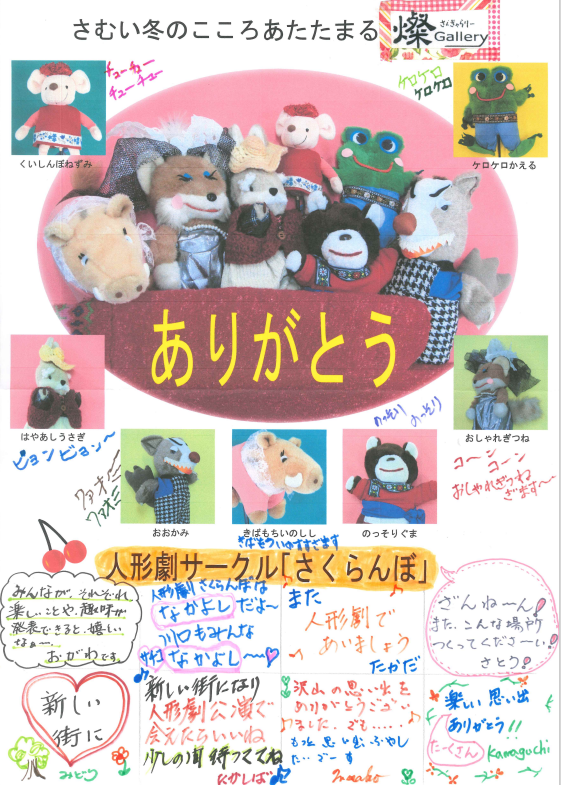 さむい冬のこころあたたまる
さんぎゃらりー
燦Gallery
チューチュー
チューチュー
ケロケロ
ケロケロ
くいしんぼねずみ
ケロケロかえる
ありがとう
はやあしうさぎ
ピョンピョン〜
のっそり のっそり
おしゃれぎつね
コーン
コーン
おしゃれぎつね
ワァオーン
ワァオーン
おおかみ
きばもちいのしし
のっそりぐま
人形劇サークル「さくらんぼ」
みんながそれぞれ
楽しいことや、趣味が
発表できると、嬉しい
なぁ〜
おがわです。
人形劇さくらんぼは
なかよしだよ〜
川口もみんな
なかよし〜
また
人形劇で
あいましょう
たかだ
ざんね〜ん!
また、こんな場所
つくってくださーい!
さとう!
新しい
街に
みどり
新しい街になり
人形劇公演で
会えたらいいね
少しの間待っててね
にかしば
沢山の思い出を
ありがとうござい
ました。でも.....
楽しい思い出
ありがとう!!
たーくさん
Kawaguchi